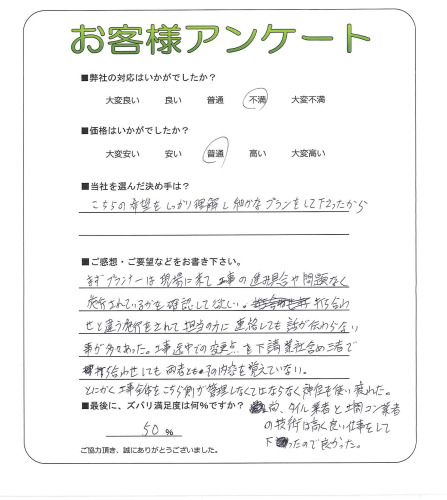 お客様アンケート
■弊社の対応はいかがでしたか?
大変良い 良い 普通 不満 大変不満
■価格はいかがでしたか?
大変安い 安い 普通 高い 大変高い
■当社を選んだ決め手は?
こちらの希望をしっかり理解し細かなプランをして下さったから
■ご感想・ご要望などをお書き下さい。
まずプランナーは現場に来て工事の進具合や問題なく
施行されているかを確認して欲しい。打ち合わ
せと違う施行をされて担当の方に連絡しても話が伝わらない
事が多々あった。工事途中での変更点を下請業社含め三者で
打ち合わせしても両者ともその内容を覚えていない。
とにかく工事全体をこちら側が管理しなくてはならなく神経を使い疲れた。
■最後に、ズバリ満足度は何%ですか?
50 %
ご協力頂き、誠にありがとうございました。
タイル業者と土間コン業者
の技術は高く良い仕事をして
下さったので良かった。